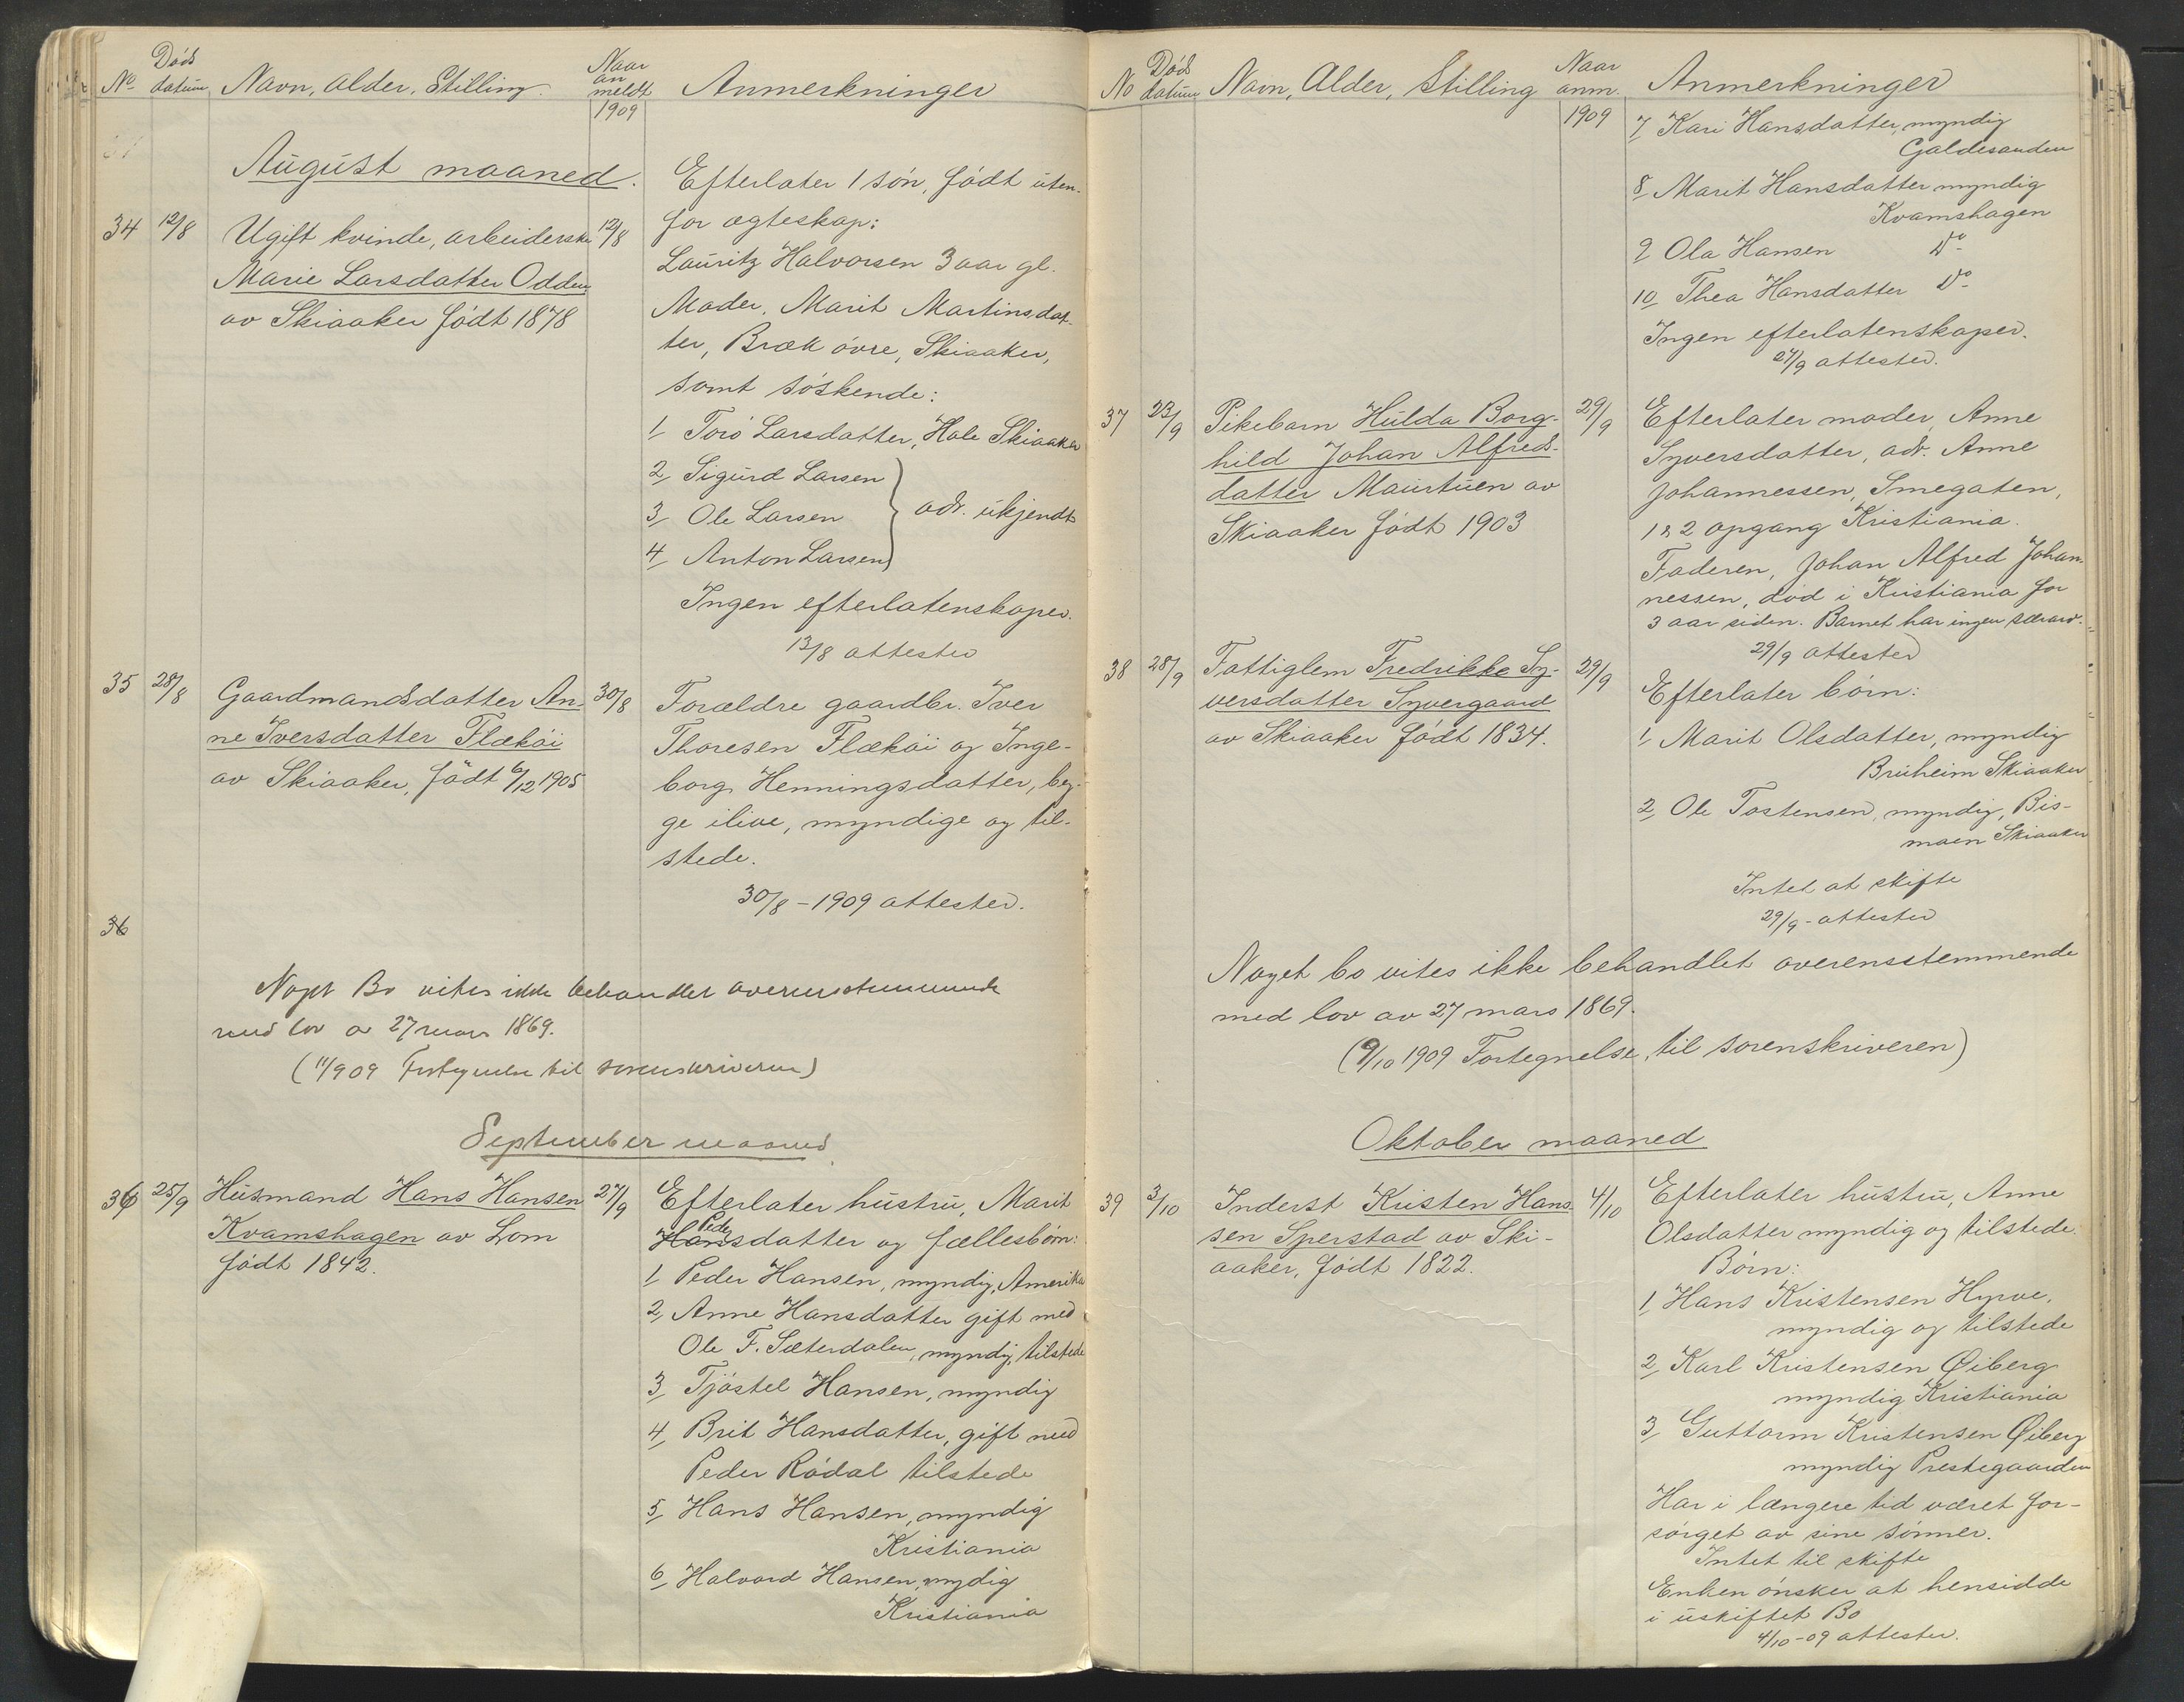 No Döds datum Navn, alder, Stilling. Naar an meldt Anmerkninger
1909
August maaned.
34 12/8 Ugift kvinde, arbeiderske 12/8
Marie Larsdatter Odden
av Skiaaker födt 1878
Efterlater 1 sön, födt uten-
for ægteskap:
Lauritz Halvorsen 3 aar gl.
Moder, Marit Martinsdat-
ter, Bræk övre, Skiaaker,
samt söskende:
1, Torö Larsdatter, Hole Skiaaker
2, Sigurd Larsen
3, Ole Larsen } adr. ukjendt
4, Anton Larsen
Ingen efterlatenskaper.
13/8 attester
35 28/8 Gaardmandsdatter An- 30/8
ne Iversdatter Flæköi
av Skiaaker, födt 6/12 1905
Forældre gaardbr. Iver
Thoresen Flæköi og Inge-
borg Henningsdatter, beg-
ge ilive, myndige og til-
stede.
30/8 - 1909 attester.
36
Noget Bo vites ikke behandlet overensstemmende
med lov av 27 mars 1869.
(11/9 09 Fortegnelse til sorenskriveren)
September maaned
36 25/9 Husmand Hans Hansen 27/9
Kvamshagen av Lom
födt 1842.
Efterlater hustru, Marit
Peder
Hansdatter og fællesbörn:
1, Peder Hansen, myndig, Amerika
2, Anne Hansdatter gift med
Ole F. Sæterdalen, myndig, tilstede
3, Tjöstel Hansen, myndig
4, Brit Hansdatter, gift med
Peder Rödal tilstede
5, Hans Hansen, myndig
Kristiania
6, Halvord Hansen, mydig
Kristiania
No Död datum Navn, Alder, Stilling Naar anm. Anmerkninger
1909
7, Kari Hansdatter, myndig
Galdesanden
8, Marit Hansdatter myndig
Kvamshagen
9, Ola Hansen Do-
10, Thea Hansdatter Do-
Ingen efterlatenskaper.
27/9 attester.
37 23/9 Pikebarn Hulda Borg- 29/9
hild Johan Alfreds-
datter Maurtuen av
Skiaaker födt 1903
Efterlater moder, Anne
Syversdatter, adr. Anne
Johannessen, Smegaten,
1 & 2 opgang Kristiania.
Faderen, Johan Alfred Johan-
nessen, död i Kristiania for
3 aar siden. Barnet har ingen særarv.
29/9 attester
38 28/9 Fattiglem Fredrikke Sy- 29/9
versdatter Syvergaard
av Skiaaker födt 1834.
Efterlater börn:
1, Marit Olsdatter, myndig
Bruheim Skiaaker
2, Ole Tostensen, myndig, Bis-
moen Skiaaker
Intet at skifte
29/9 - attester
Noget bo vites ikke behandlet overensstemmende
med lov av 27 mars 1869.
(9/10 1909 Fortegnelse, til sorenskriveren)
Oktober maaned
39 3/10 Inderst Kristen Han- 4/10
sen Sperstad av Ski-
aaker, födt 1822.
Efterlater hustru, Anne
Olsdatter myndig og tilstede.
Börn:
1, Hans Kristensen Hyrve,
myndig og tilstede
2, Karl Kristensen Øiberg
myndig Kristiania
3, Guttorm Kristensen Øiberg
myndig Prestegaarden
Har i længere tid været for-
sörget av sine sönner.
Intet til skifte
Enken önsker at hensidde
i uskiftet Bo
4/10 - 09 attester.